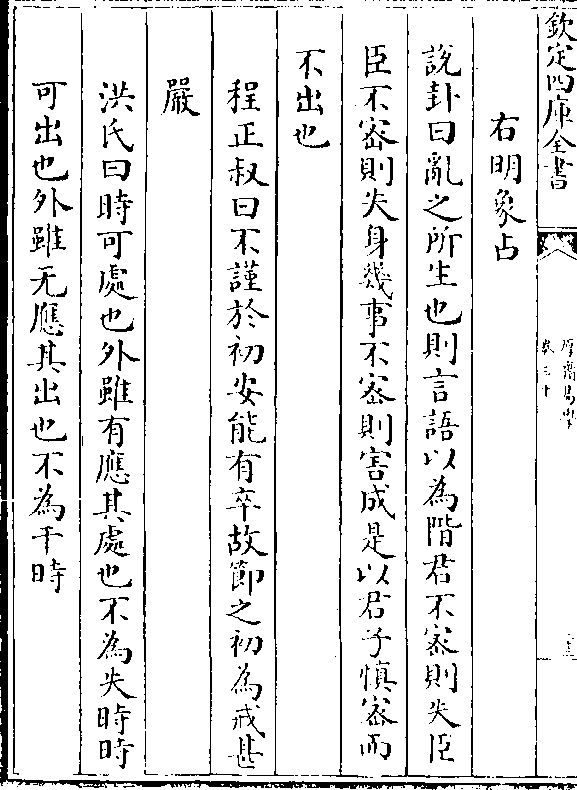 欽定四庫全書
厚齋易學
卷三十
右明象占
說卦曰亂之所生也則言語以為階君不宻則失臣
臣不宻則失身幾事不宻則害成是以君子慎宻而
不出也
程正叔曰不謹於初安能有卒故節之初為戒甚
嚴
洪氏曰時可處也外雖有應其處也不為失時時
可出也外雖无應其出也不為干時